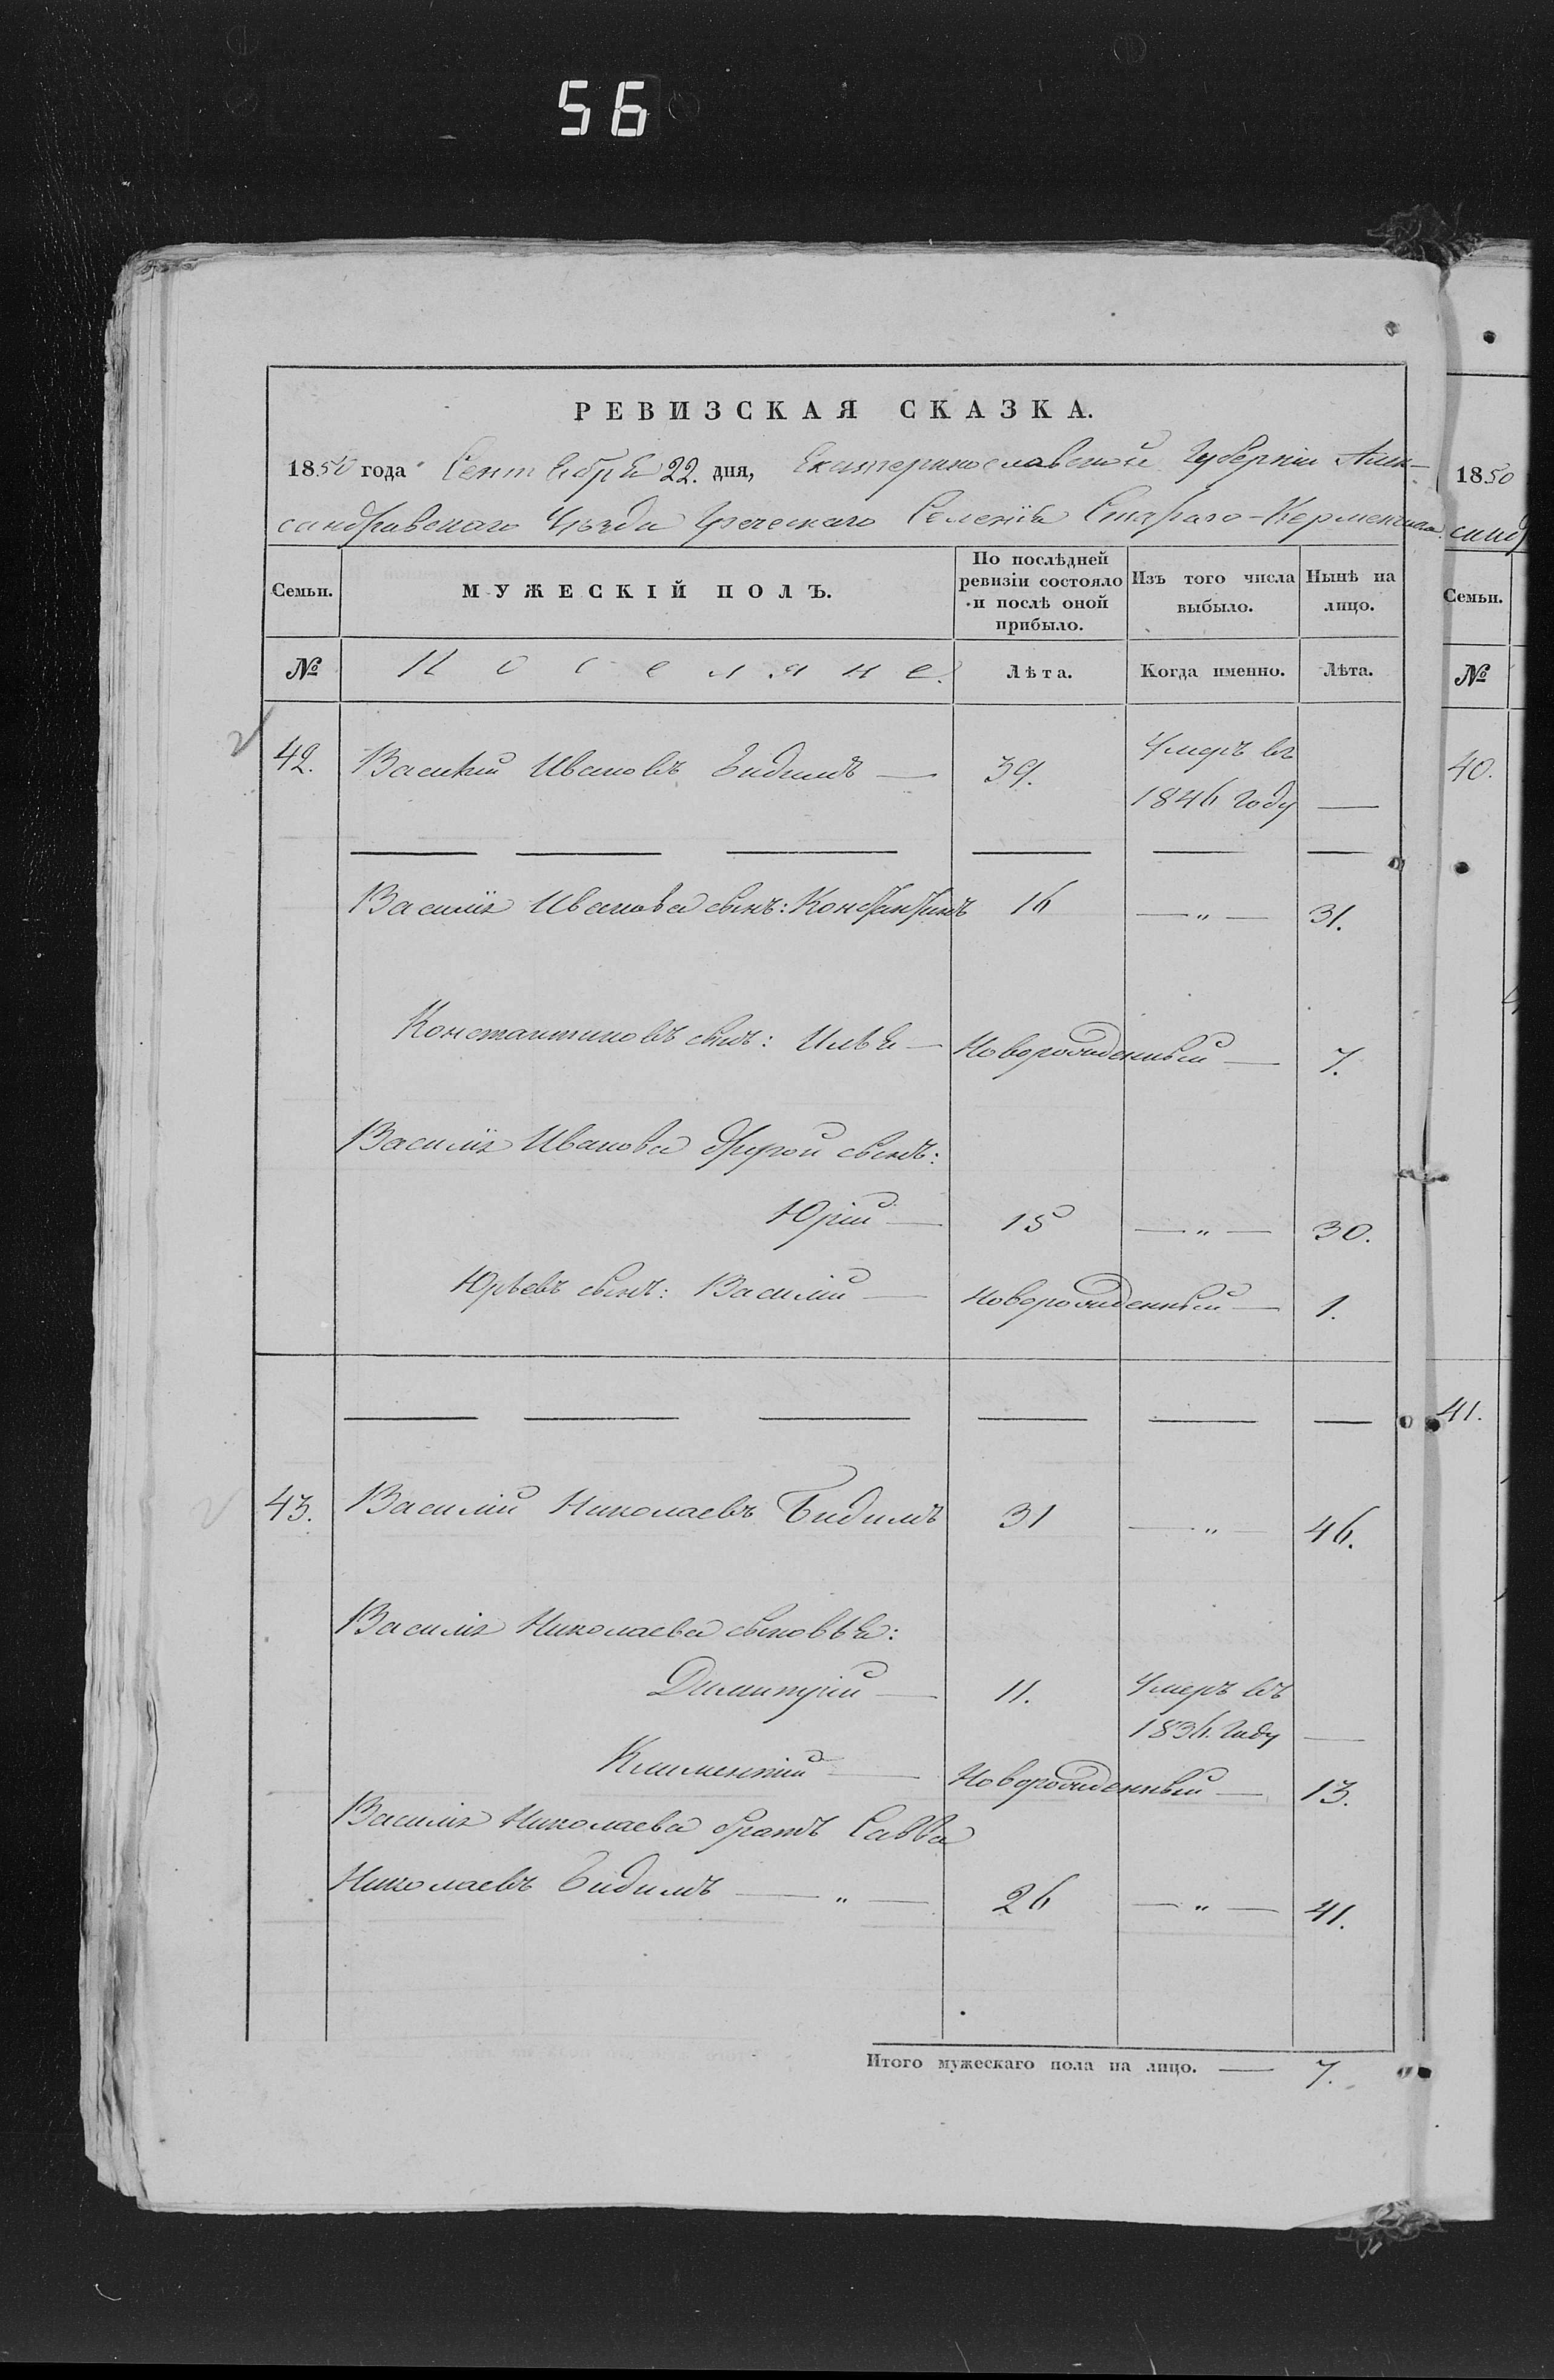 56
РЕВИЗСКАЯ СКАЗКА.
1850 года Сентября 22. дня, Екатеринославской Губернии Алек-
сандровскаго Уѣзда Греческаго Селенія Стараго-Керменчика
Семьи. МУЖЕСКІЙ ПОЛЪ. По послѣдней ревизіи состояло и послѣ оной прибыло. Изъ того числа выбыло. Нынѣ на лицо.
№ Поселяне. Лѣта. Когда именно. Лѣта.
42. Василій Ивановъ Бидилъ — 39. Умеръ въ
1846 году —
Василія Иванова сынъ: Константинъ 16 — „ — 31.
Константиновъ сынъ: Илья — Новорожденный — 7.
Василія Иванова другой сынъ:
Юрій — 15 — „ — 30.
Юрьевъ сынъ: Василій — Новорожденный — 1.
43. Василій Николаевъ Бидилъ 31 — „ — 46.
Василія Николаева сыновья:
Димитрій — 11. Умеръ въ
1836. году —
Климентій — Новорожденный — 13.
Василія Николаева братъ Савва
Николаевъ Бидилъ — „ — 26 — „ — 41.
Итого мужескаго пола на лицо. — 7.
1850
санд
Семьи.
№
40.
41.